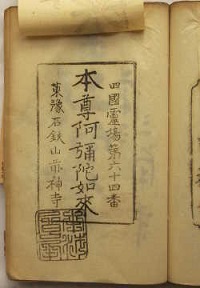 四國霊場第六十四番
本尊阿彌陀如来
東豫石鈇山前神寺